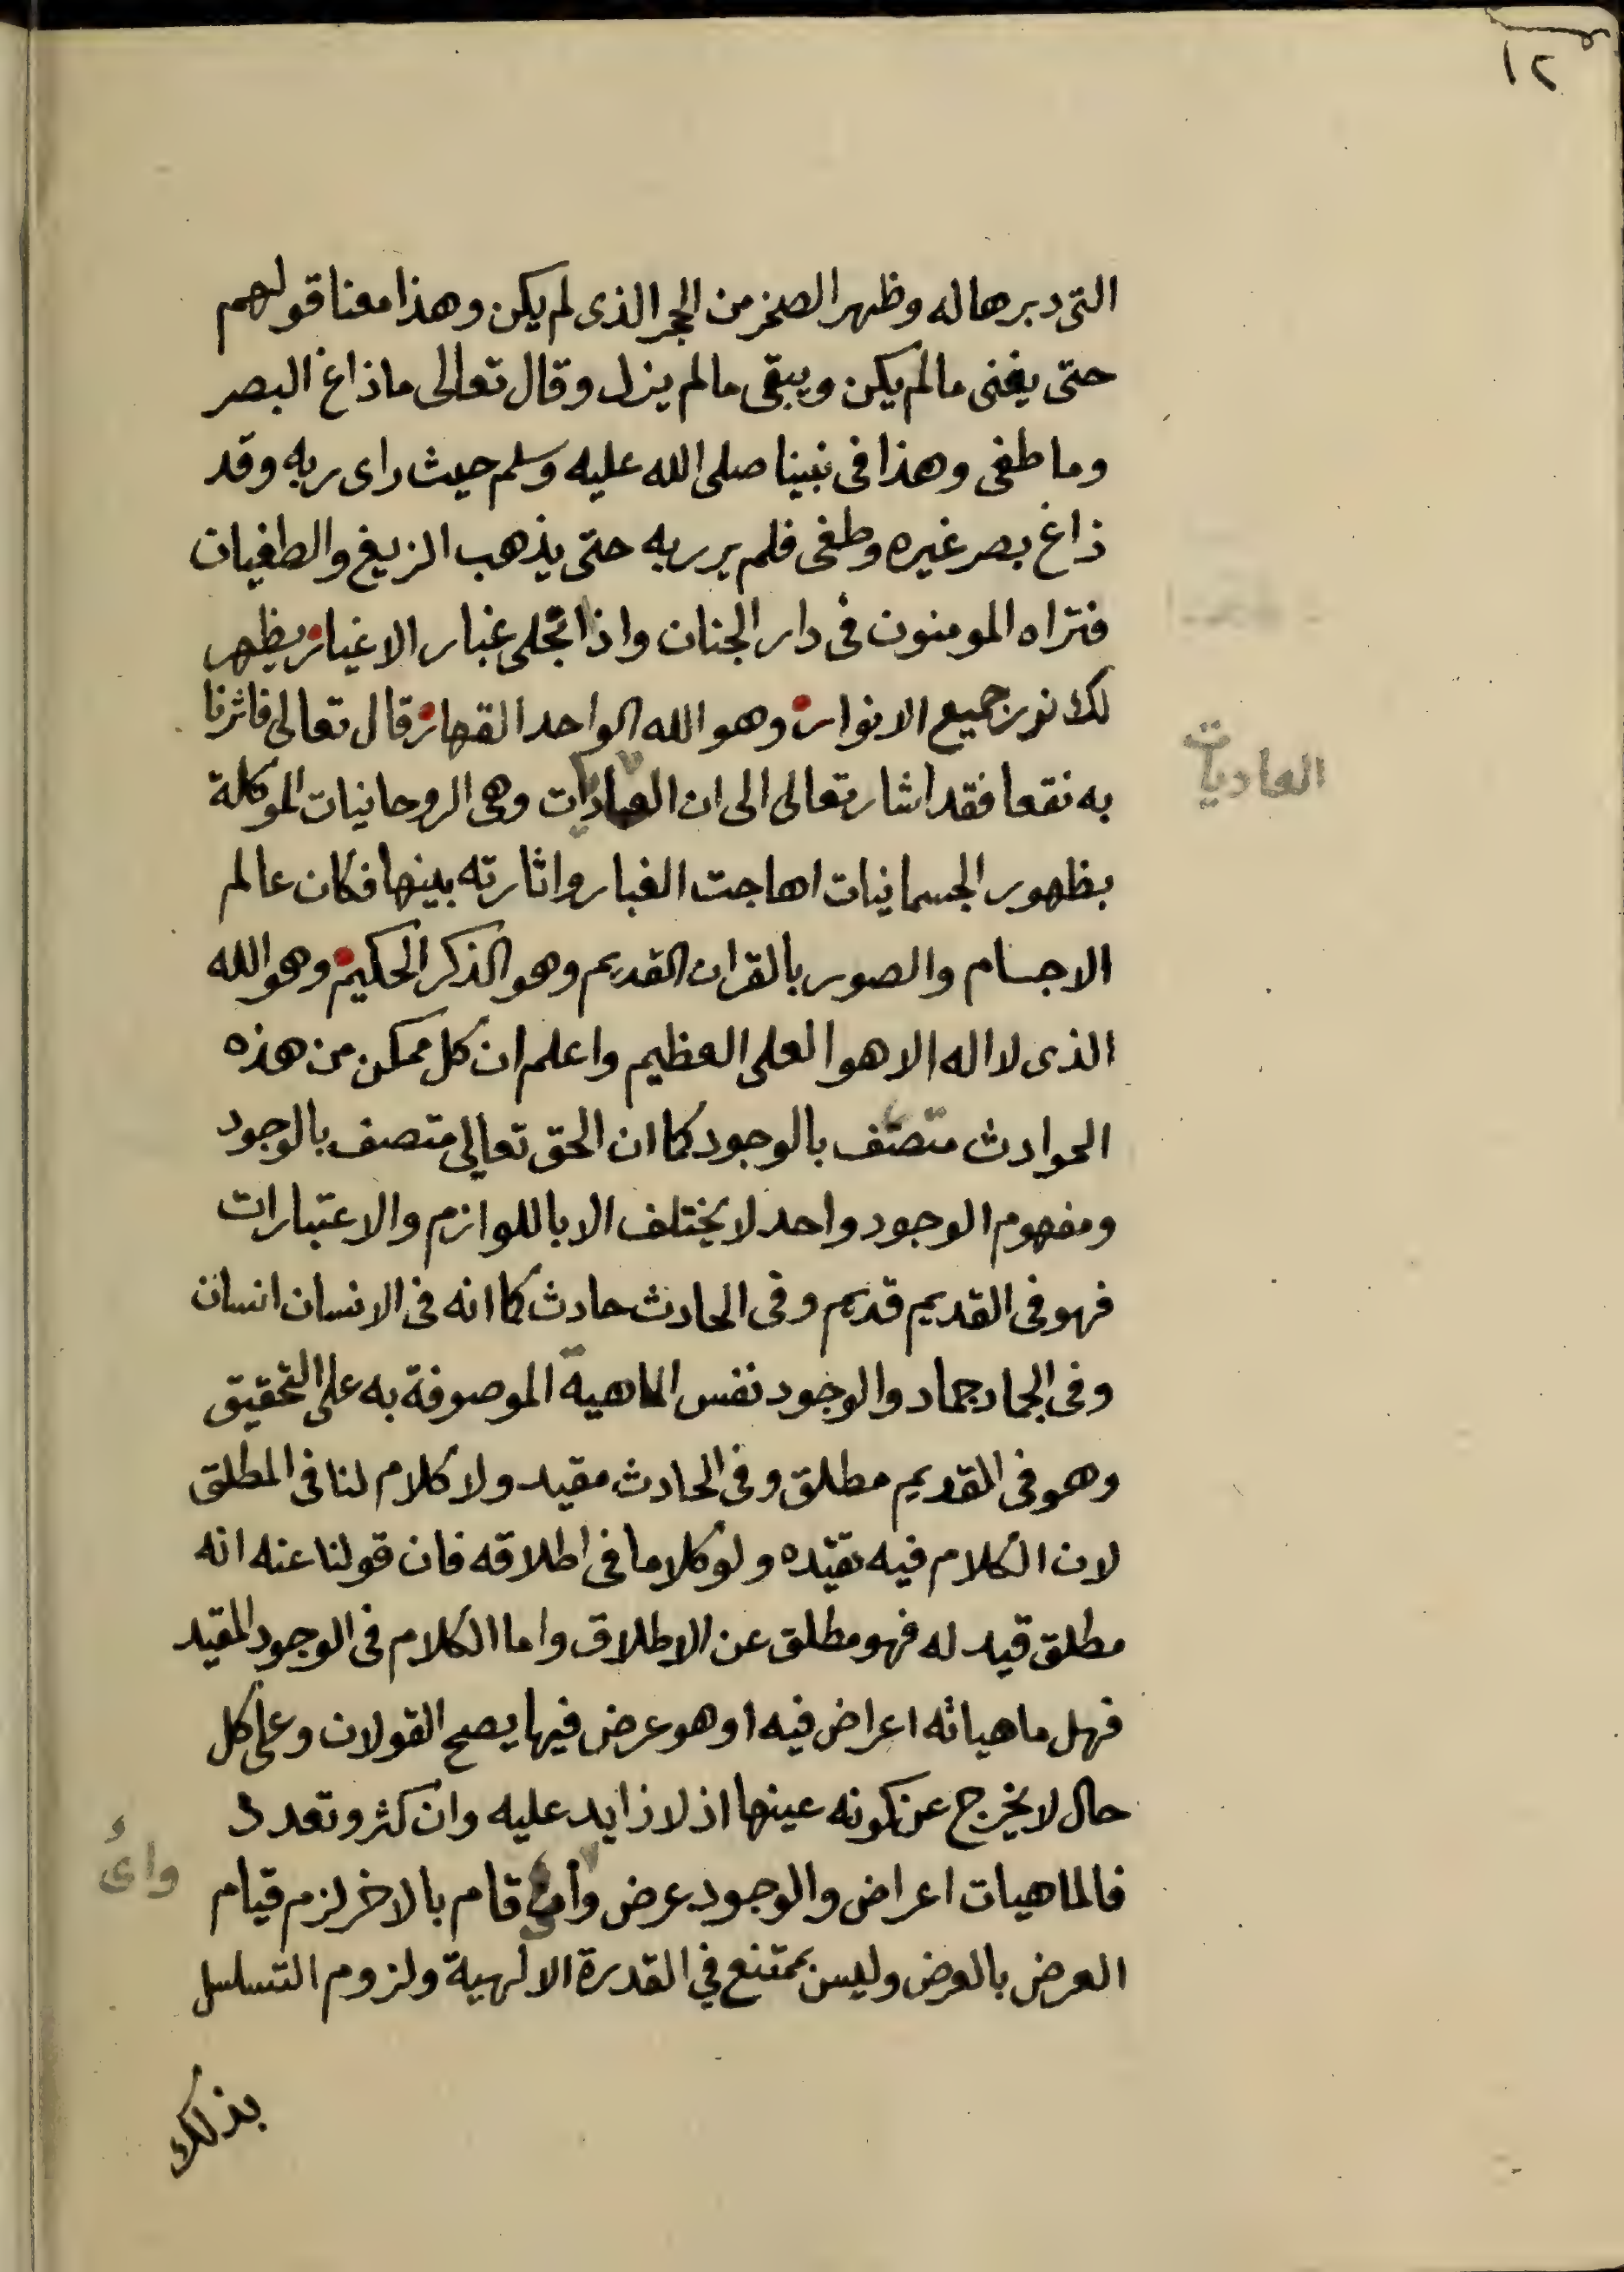 ١٢
التى دبرها له وظهر الصخر من الحجر الذى لم يكن وهذا معنا قولهم
حتى يفنى مالم يكن ويبقى مالم يزل وقال تعالى ماذاغ البصر
وما طغى وهذا فى نبينا صلى الله عليه وسلم حيث راى ربه وقد
ذاغ بصر غيره وطغى فلم ير ربه حتى يذهب الزيغ والطغيان
فتراه المومنون فى دار الجنان واذا تجلى غبار الاغيار يظهر
لك نور جميع الانوار وهو الله الواحد القهار قال تعالى فاثرنا
به نقعا فقد اشار تعالى الى ان العاديات وهى الروحانيات الموكلة
العاديات
بظهور الجسمانيات اهاجت الغبار واثارته بينها فكان عالم
الاجسام والصور بالقران القديم وهو الذكر الحكيم وهو الله
الذى لا اله الا هو العلى العظيم واعلم ان كل ممكن من هذه
الحوادث متصف بالوجود كما ان الحق تعالى متصف بالوجود
ومفهوم الوجود واحد لا يختلف الا باللوازم والاعتبارات
فهو فى القديم قديم وفى الحادث حادث كما انه فى الانسان انسان
وفى الجماد جماد والوجود نفس الماهية الموصوفة به على التحقيق
وهو فى القديم مطلق وفى الحادث مقيد ولا كلام لنا فى المطلق
لان الكلام فيه تقيده ولو كلاما فى اطلاقه فان قولنا عنه انه
مطلق قيد له فهو مطلق عن الاطلاق واما الكلام فى الوجود المقيد
فهل ماهياته اعراض فيه او هو عرض فيها يصح القولان وعلى كل
حال لا يخرج عن كونه عينها اذ لا زايد عليه وان كثر وتعدد
فالماهيات اعراض والوجود عرض وأى قام بالاخر لزم قيام
وأى
العرض بالعرض وليس بممتنع في القدرة الالهية ولزوم التسلسل
بذلك